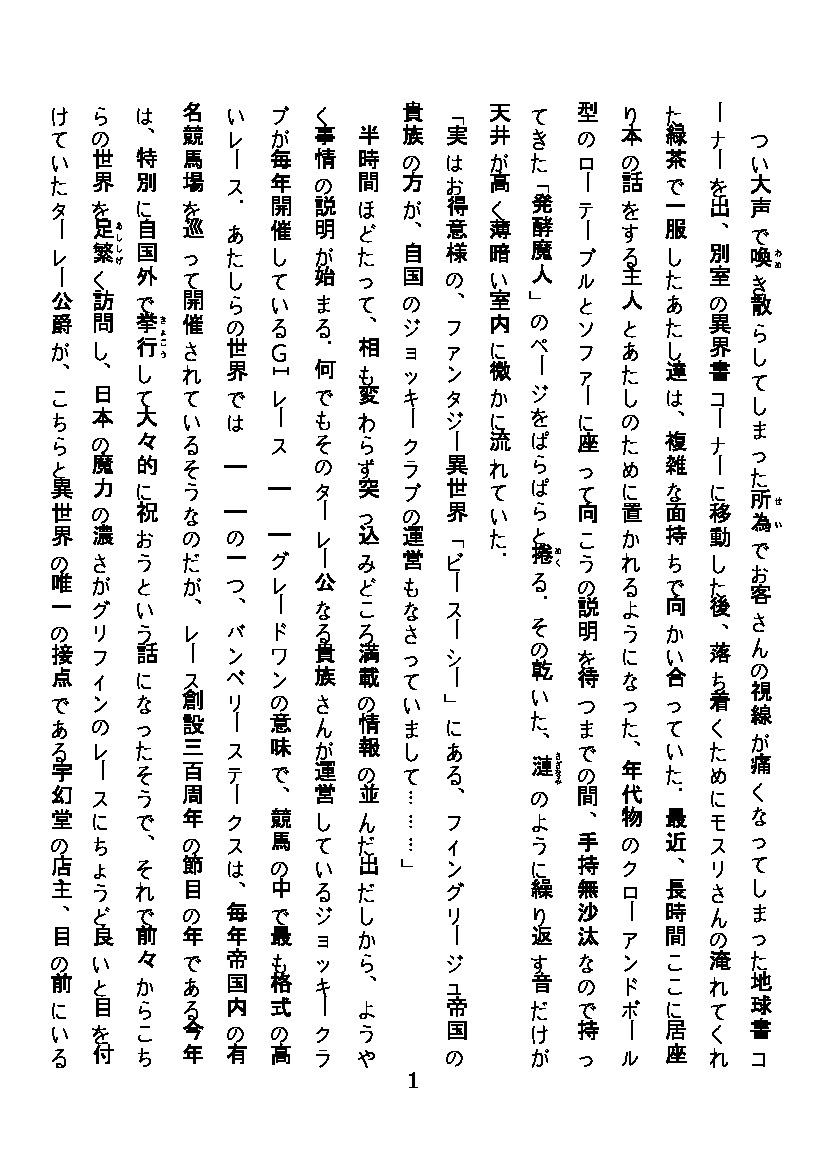 つい大声で喚き散らしてしまった所為でお客さんの視線が痛くなってしまった地球書コ
ーナーを出、別室の異界書コーナーに移動した後、落ち着くためにモスリさんの淹れてくれ
た緑茶で一服したあたし達は、複雑な面持ちで向かい合っていた．最近、長時間ここに居座
り本の話をする主人とあたしのために置かれるようになった、年代物のクローアンドボール
型のローテーブルとソファーに座って向こうの説明を待つまでの間、手持無沙汰なので持っ
てきた「発酵魔人」のページをぱらぱらと捲る．その乾いた、漣のように繰り返す音だけが
天井が高く薄暗い室内に微かに流れていた．
「実はお得意様の、ファンタジー異世界「ビースーシー」にある、フィングリージュ帝国の
貴族の方が、自国のジョッキークラブの運営もなさっていまして………」
半時間ほどたって、相も変わらず突っ込みどころ満載の情報の並んだ出だしから、ようや
く事情の説明が始まる．何でもそのターレー公なる貴族さんが運営しているジョッキークラ
ブが毎年開催しているGIレース――グレードワンの意味で、競馬の中で最も格式の高
いレース．あたしらの世界では――の一つ、バンベリーステークスは、毎年帝国内の有
名競馬場を巡って開催されているそうなのだが、レース創設三百周年の節目の年である今年
は、特別に自国外で挙行して大々的に祝おうという話になったそうで、それで前々からこち
らの世界を足繁く訪問し、日本の魔力の濃さがグリフィンのレースにちょうど良いと目を付
けていたターレー公爵が、こちらと異世界の唯一の接点である宇幻堂の店主、目の前にいる
1